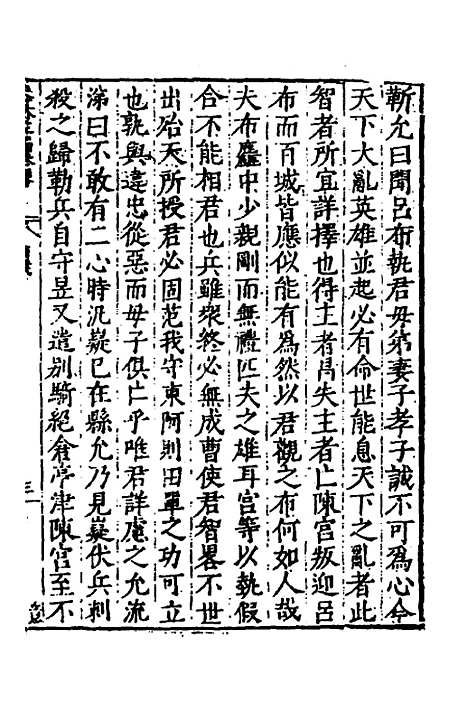 靳允曰聞呂布執君母弟妻子孝子誠不可爲心今
天下大亂英雄並起必有命世能息天下之亂者此
智者所宜詳擇也得主者昌失主者亡陳宮叛迎呂
布而百城皆應似能有爲然以君觀之布何如人哉
夫布麤中少親剛而無禮匹夫之雄耳宮等以執假
合不能相君也兵雖衆終必無成曹使君智畧不世
出殆天所授君必固范我守東阿則田單之功可立
也孰與違忠從惡而母子俱亡乎唯君詳慮之允流
涕曰不敢有二心時汎嶷已在縣允乃見嶷伏兵刺
殺之歸勒兵自守昱又遣别騎絕倉亭津陳宮至不